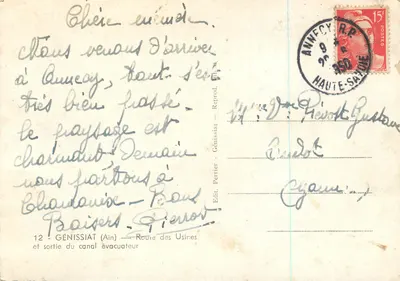 Chère mémère
Nous venons d'arriver
à Annecy, tout s'est
très bien passé.
le paysage est
charmant, Demain
nous partons à
Chamonix - Bons
Baisers - Pierrot
12 - GENISSIAT (Ain) — Route des Usines
et sortie du canal évacuateur
Edit. Perrier - Génissiat - Reprod.
ANNECY R.P.
9
26
1950
HAUTE-SAVOIE
15F
Prévost Gustave